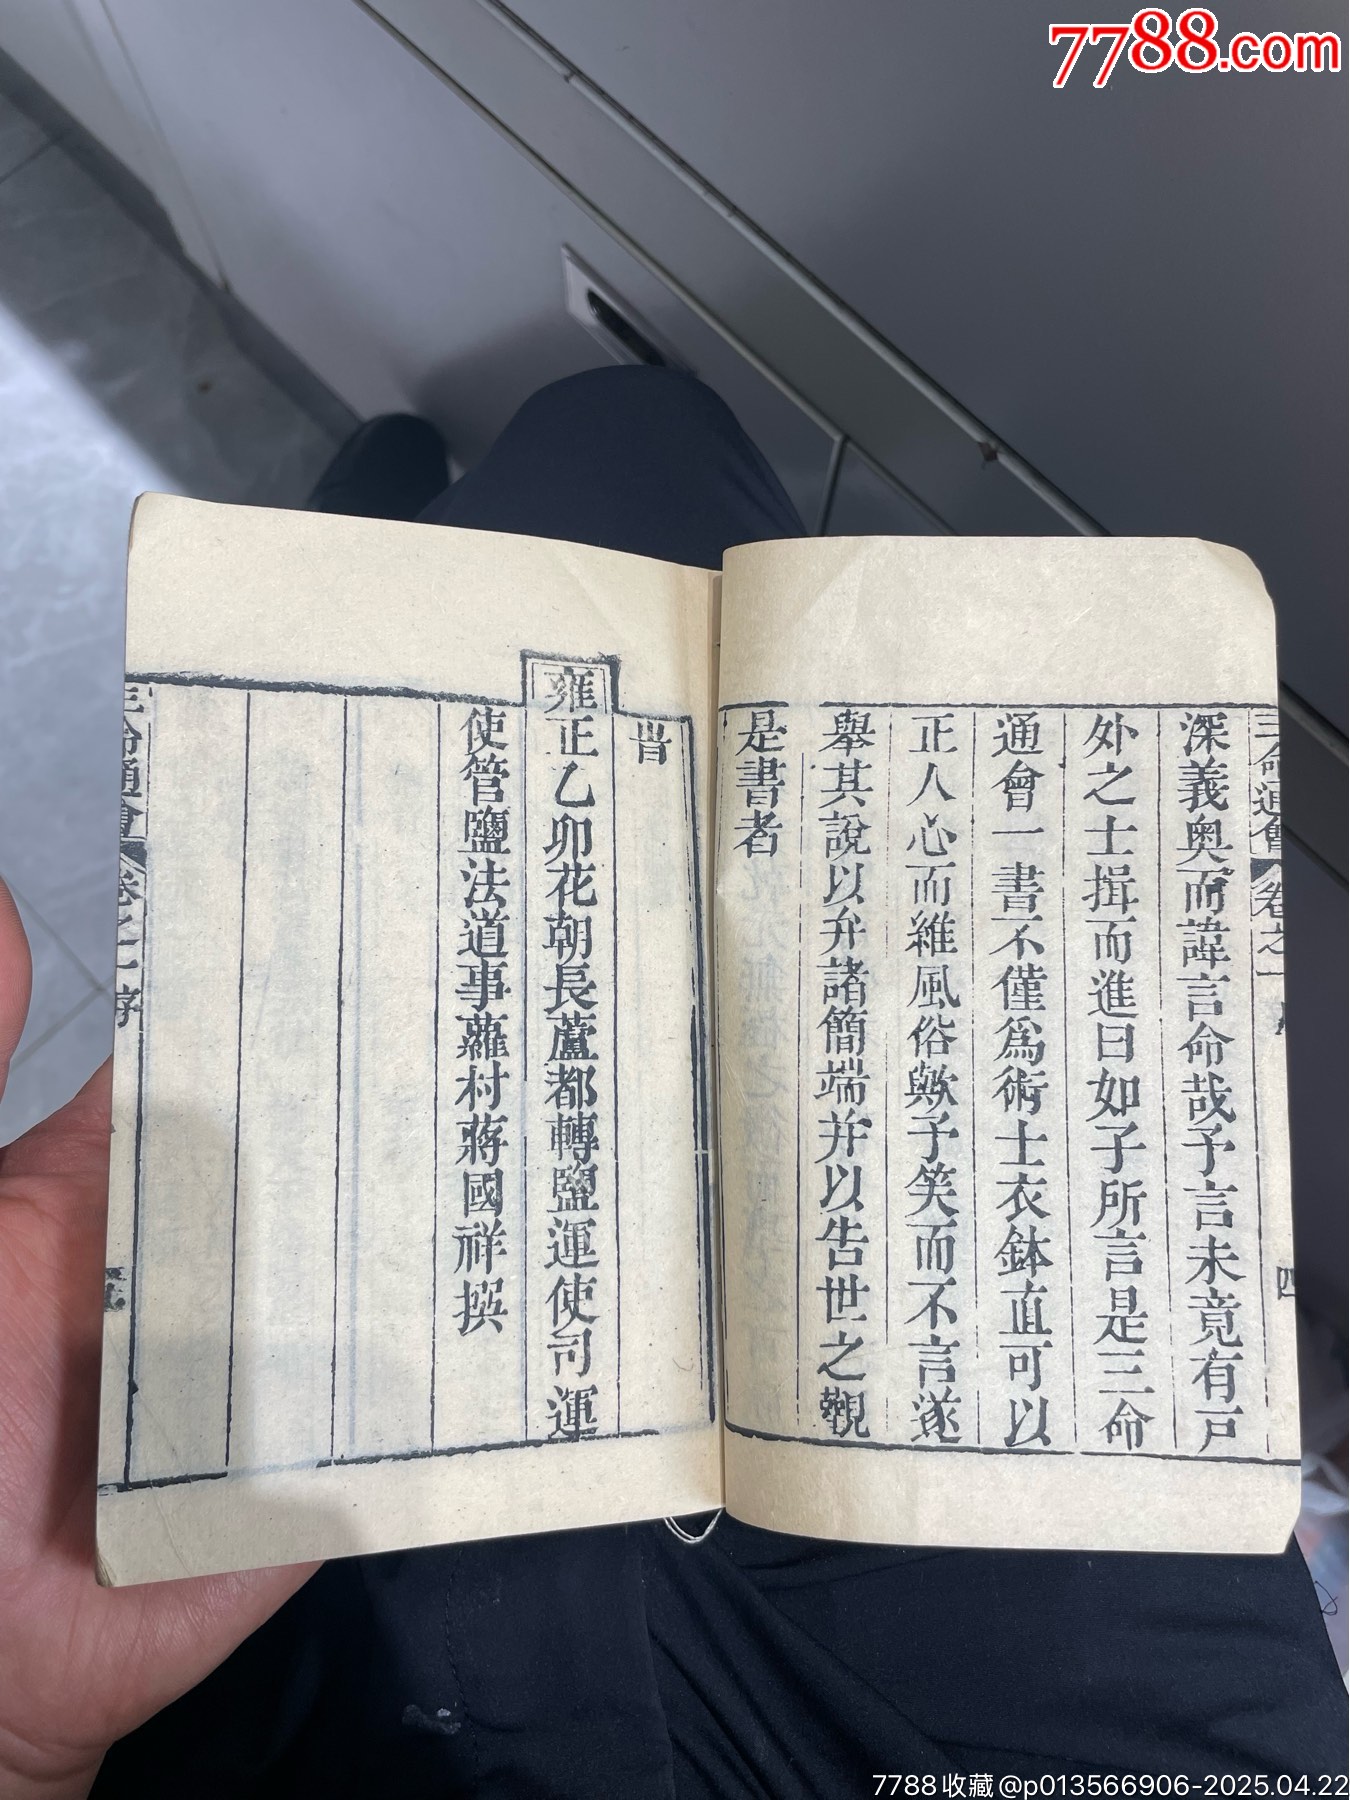 7788.com
三命通會 卷之一 序 四
深義奥而諱言命哉予言未竟有戸
外之士揖而進曰如子所言是三命
通會一書不僅為術士衣鉢直可以
正人心而維風俗歟予笑而不言遂
舉其說以弁諸簡端并以告世之觀
是書者
旹
雍正乙卯花朝長蘆都轉鹽運使司運
使管鹽法道事蘿村蔣國祥撰
三命通會 卷之一 序 五
7788收藏@p013566906-2025.04.22